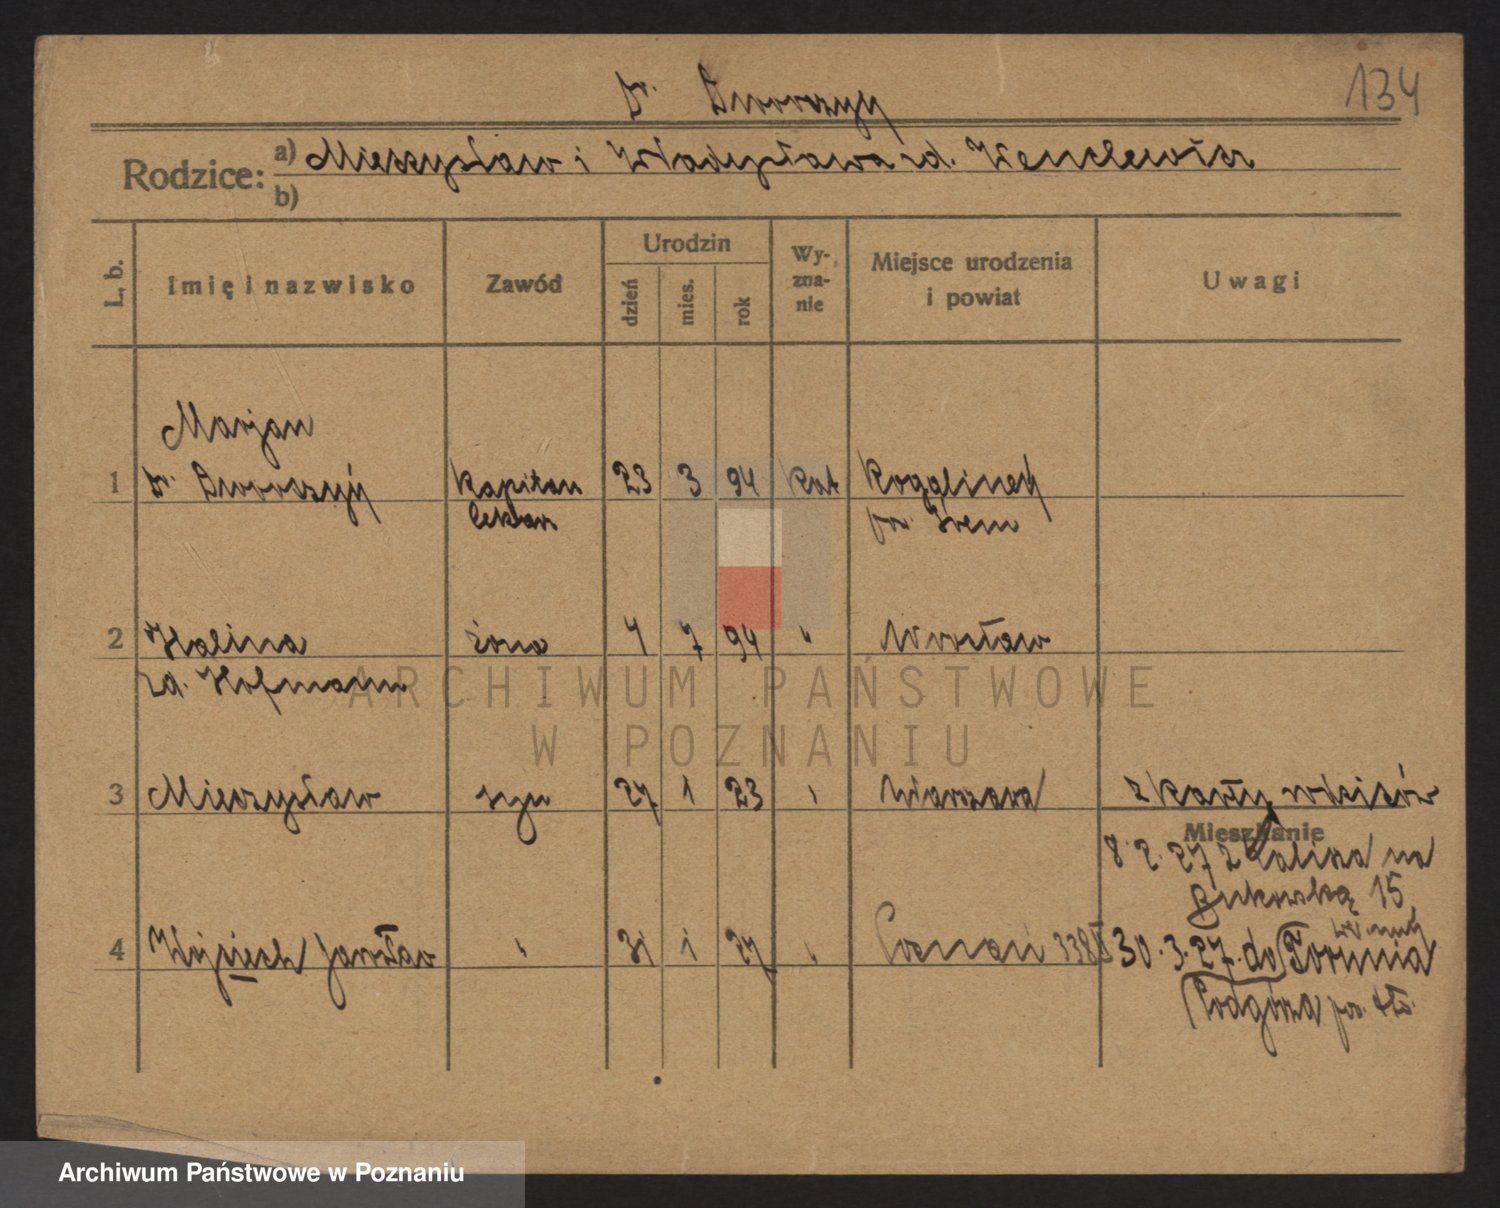 134
Dr. Dworczyj
Rodzice:
a) Mieczysław i Władysława zd. Wenclewicz
b)
L. b.
Imię i nazwisko
Zawód
Urodzin
dzień
mies.
rok
Wy-
zna-
nie
Miejsce urodzenia
i powiat
Uwagi
Marjan
1 Dr. Kapitan 23 3 94 Kat Rogalinek
lekarz pow. Śrem
2 Halina żona 4 7 94 " Wrocław
zd. Hofmann
3 Mieczysław syn 27 1 23 " Warszawa z karty
Mieszkanie
8.2.27 z Kalisza na
Bukowską 15
4 Wojciech Jarosław " 31 1 27 " Poznań 338 30.3.27. do Torunia
Podgórza pow.
ARCHIWUM PAŃSTWOWE
W POZNANIU
Archiwum Państwowe w Poznaniu